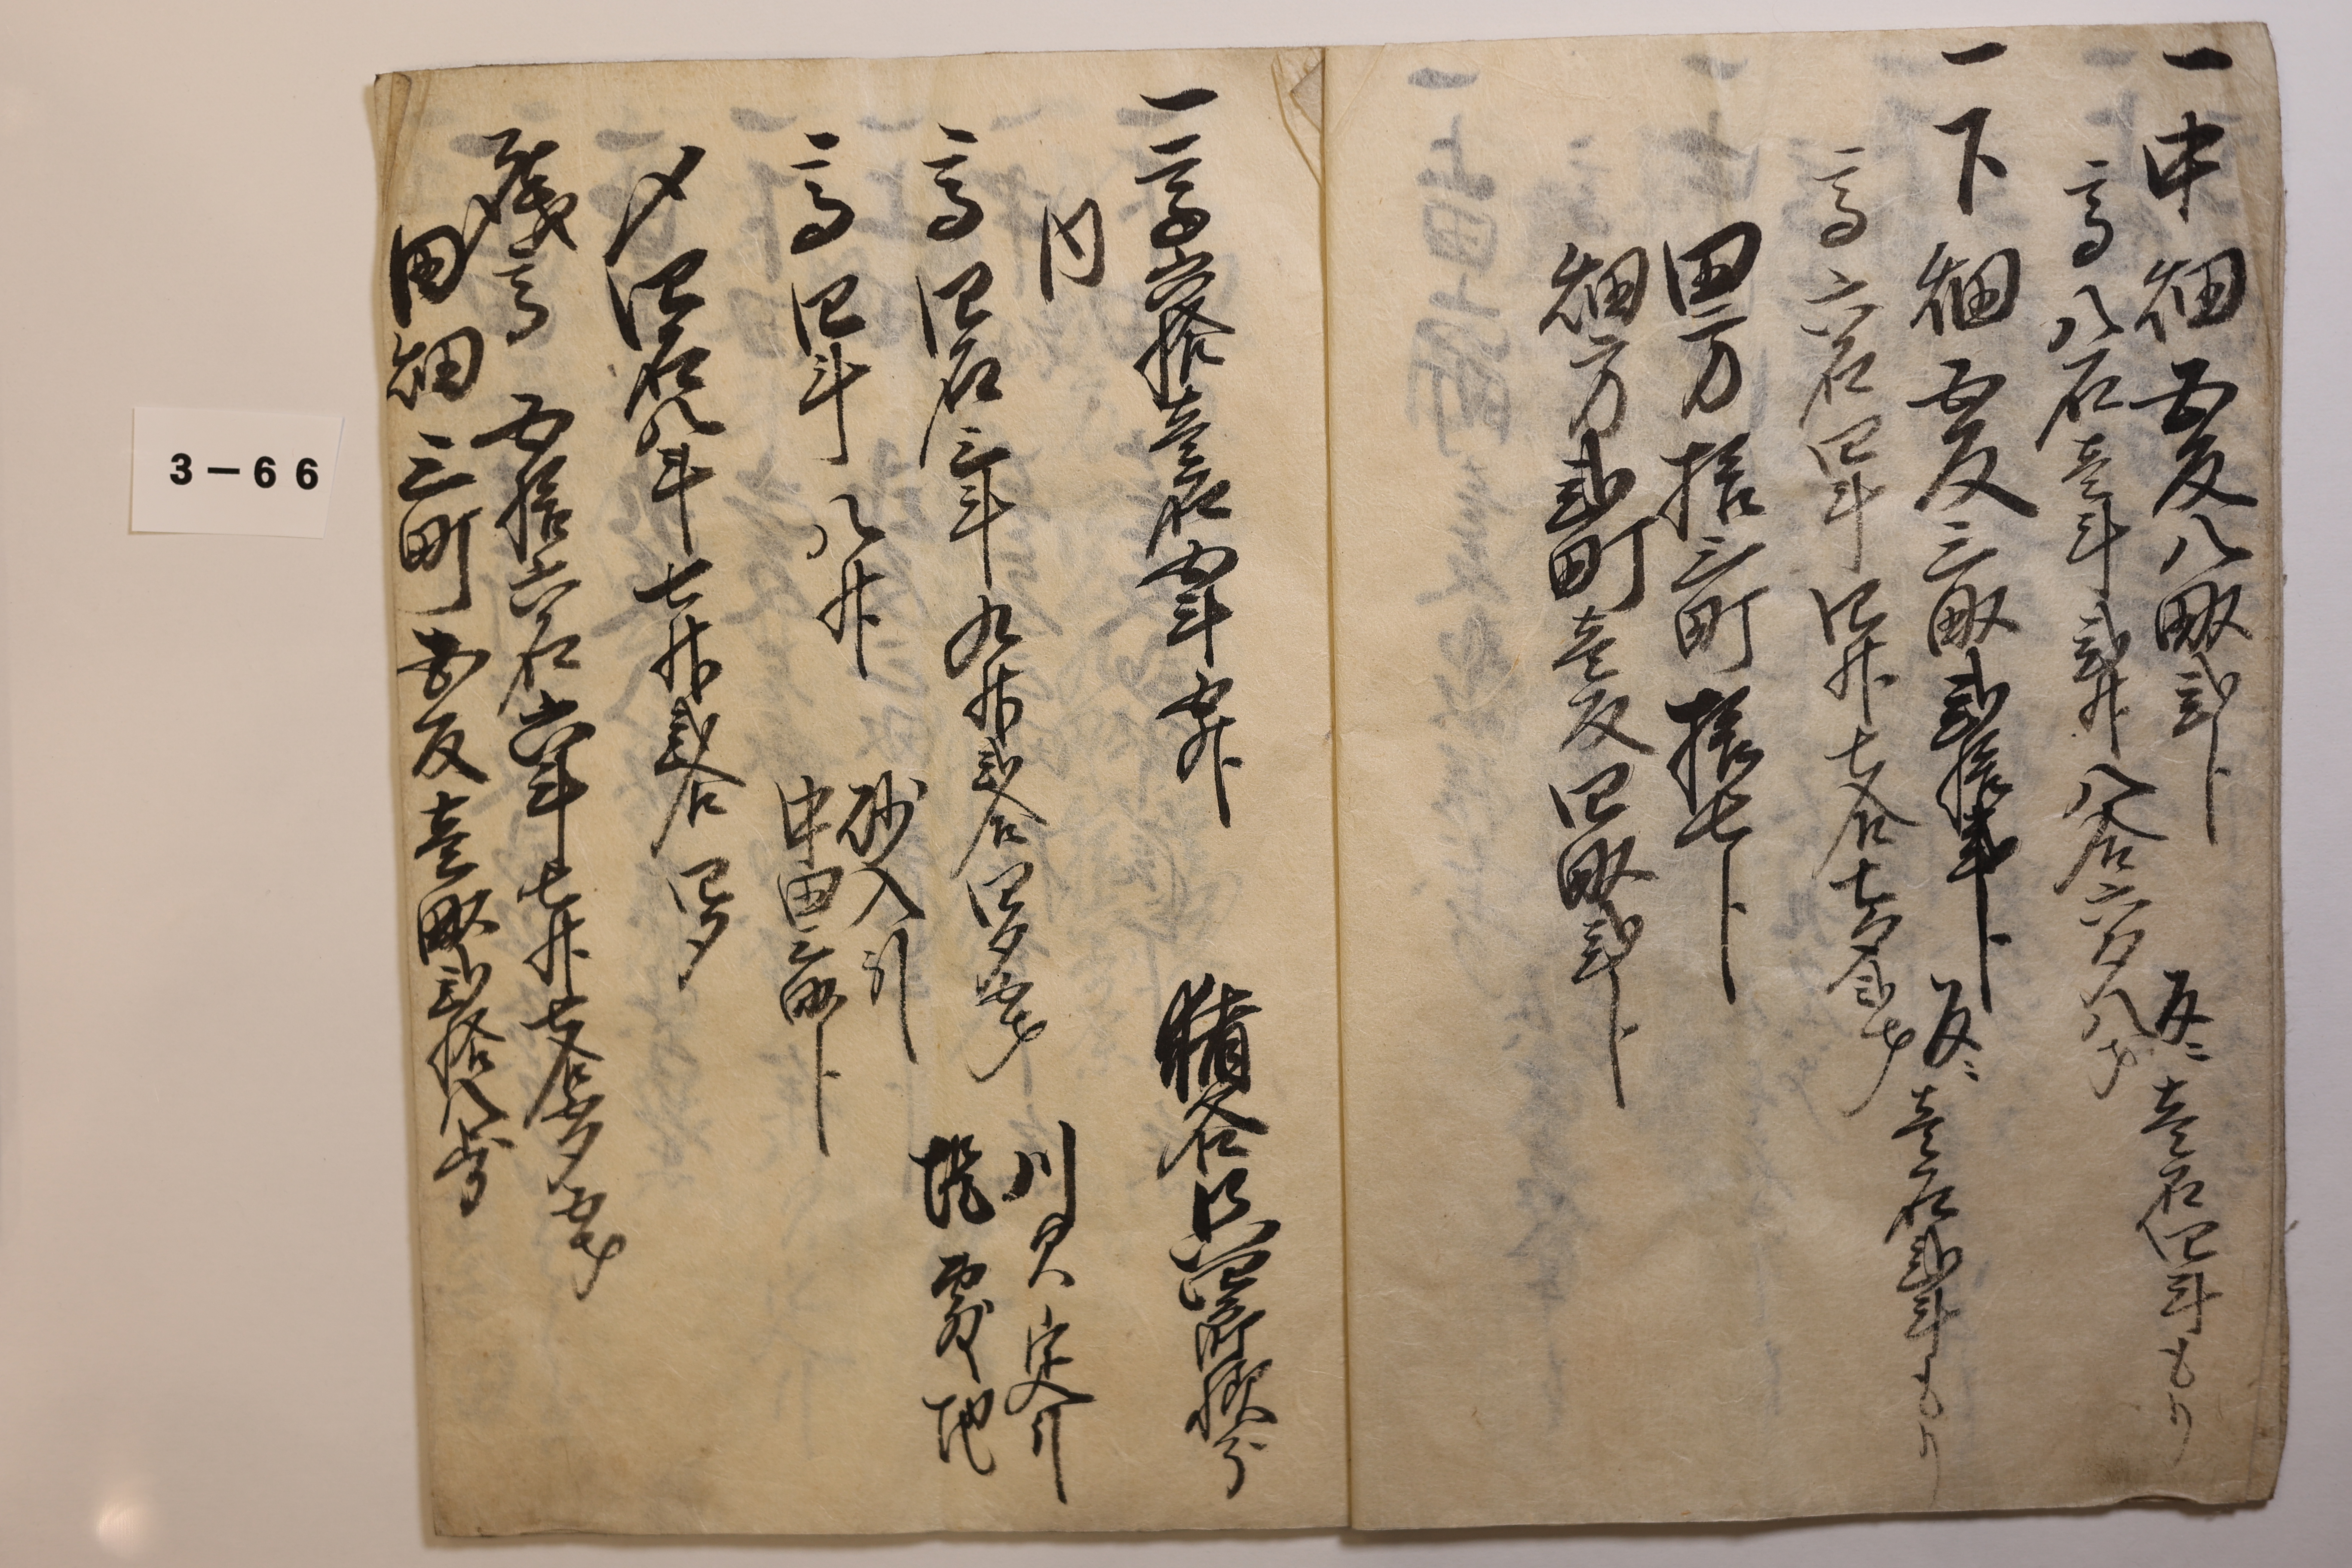 一 中畑五反八畝弐卜 反ニ壱石四斗もり
高八石壱斗弐升八合六夕八才
一 下畑五反三畝弐拾弐卜 反ニ壱石弐斗もり
高六石四斗四升七合七夕弐才
田方拾三町拾七卜
畑方弐町壱反四畝弐卜
一 高六拾壱石五斗五升 猪谷
内
高四石三斗九升弐合四夕五才 川欠
砂入引
高四斗八升 中田三畝卜
〆四石八斗七升弐合四夕
残高 五拾六石六斗七升七合五夕五才
田畑三町五反壱畝弐拾八歩
3-66